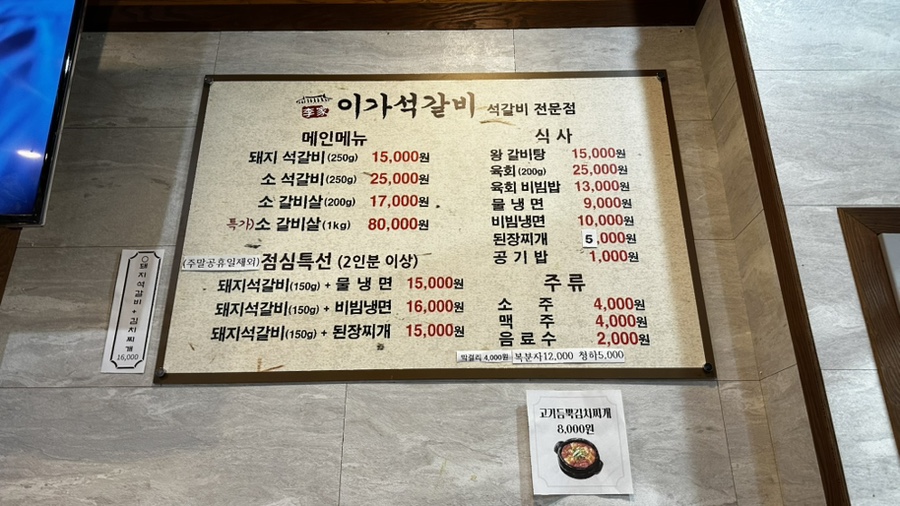 李家 이가석갈비 석갈비 전문점
메인메뉴
돼지 석갈비(250g) 15,000원
소 석갈비(250g) 25,000원
소 갈비살(200g) 17,000원
특가)소 갈비살(1kg) 80,000원
(주말공휴일제외)점심특선 (2인분 이상)
돼지석갈비(150g) + 물 냉 면 15,000원
돼지석갈비(150g) + 비빔냉면 16,000원
돼지석갈비(150g) + 된장찌개 15,000원
식 사
왕 갈비탕 15,000원
육회(200g) 25,000원
육회 비빔밥 13,000원
물 냉 면 9,000원
비빔냉면 10,000원
된장찌개 5,000원
공 기 밥 1,000원
주 류
소 주 4,000원
맥 주 4,000원
음 료 수 2,000원
막걸리 4,000원 복분자12,000 청하5,000
○돼지석갈비+김치찌개
16,000
고기듬뿍김치찌개
8,000원